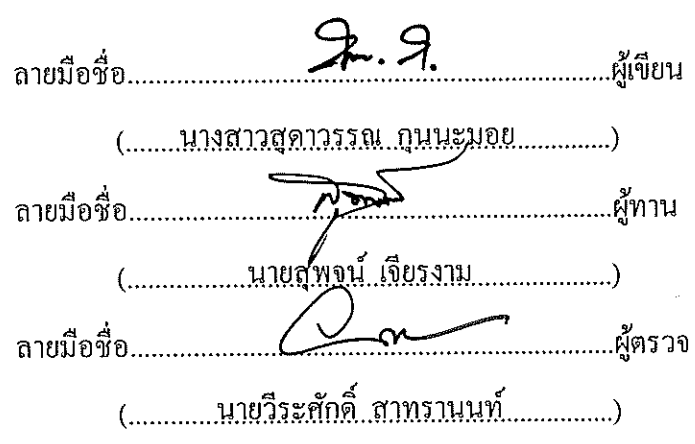 ลายมือชื่อ................................................ผู้เขียน
(.......นางสาวสุดาวรรณ กุนนะมอย.............)
ลายมือชื่อ................................................ผู้ทาน
(................นายสุพจน์ เจียรงาม..................)
ลายมือชื่อ................................................ผู้ตรวจ
(............นายวีระศักดิ์ สาทรานนท์..............)